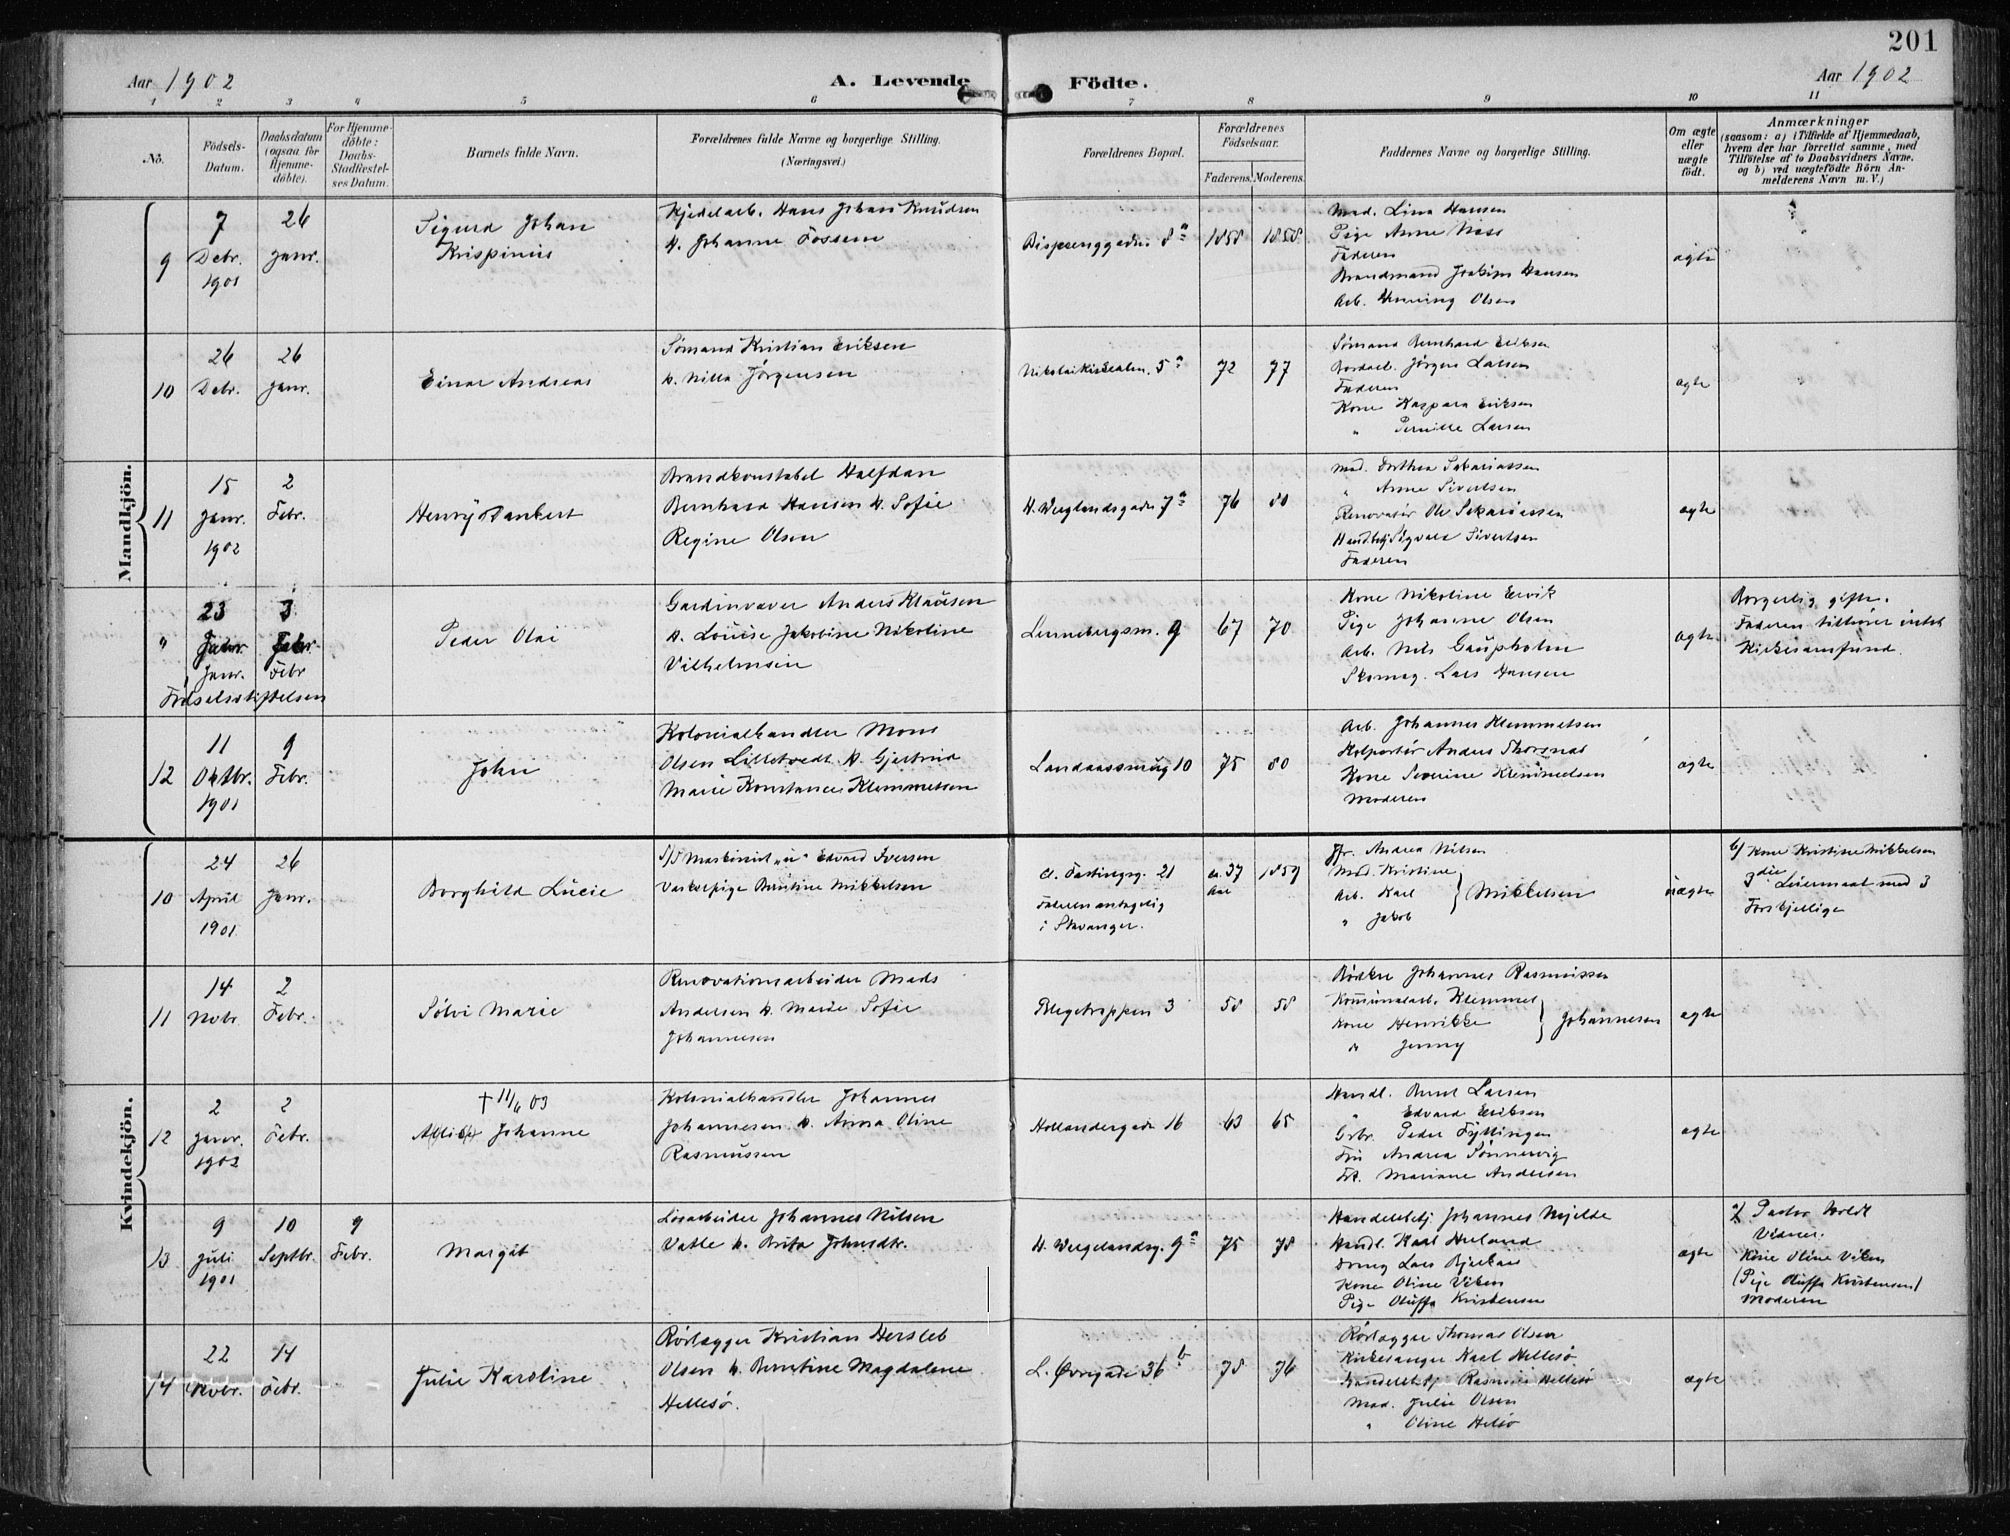 201
Aar 1902
A. Levende Födte.
Aar 1902
1 2 3 4 5 6 7 8 9 10 11
No.
Födsels-Datum.
Daabsdatum (ogsaa for Hjemme-döbte).
For Hjemme-döbte: Daabs-Stadfæstel-ses Datum.
Barnets fulde Navn.
Forældrenes fulde Navne og borgerlige Stilling.
(Næringsvei.)
Forældrenes Bopæl.
Forældrenes Födselsaar.
Faderens. Moderens.
Faddernes Navne og borgerlige Stilling.
Om ægte eller uægte födt.
Anmærkninger
(saasom: a) i Tilfælde af Hjemmedaab,
hvem der har forrettet samme, med
Tilföielse af to Daabsvidners Navne.
og b) ved uægtefödte Börn An-
melderens Navn m. V.)
Mandkjön.
9
7 Debr. 1901
26 Janr.
Sigurd Johan
Krispinus
Kjedelarb. Hans Johan Knudsen
h. Johanne Fossem
Bispeenggaden 8a
1858
1858
Mad. Lina Hansen
Pige Anne Næss
Faderen
Brandmand Joakim Hansen
Arb. Henning Olsen
ægte
10
26 Debr.
26 Janr.
Einar Andreas
Sömand Kristian Eriksen
h. Nilla Jørgensen
Nikolaikirkealm. 5a
72
77
Sömand Bernhard Eriksen
Jørgen Larsen
Faderen
Kone Kaspara Eriksen
" Pernille Larsen
ægte
11
15 Janr. 1902
2 Febr.
Henry Dankert
Brandkonstabel Halfdan
Bernhard Hansen h. Sofie
Regine Olsen
H. Werglandsgaden 7a
76
80
Mad. Dorthea Sakariassen
" Anne Sivertsen
Renovatör Ole Sakariassen
Handelsbtj. Sigvald Sivertsen
Faderen
ægte
"
23 Janr.
3 Febr
Födselsstiftelsen
Peder Olai
Gardinvæver Anders Klausen
h. Louise Jakobine Nikoline
Vilhelmsen
Lennebergsm. 9
67
70
Kone Nikoline Ervik
Pige Johanne Olsen
Arb. Nils Gaupholm
Skomag. Lars Hansen
ægte
Borgerlig gifte.
Faderen tilhører intet
Kirkesamfund.
12
11 Oktbr. 1901
9 Febr.
John
Kolonialhandler Mons
Olsen Lilletvedt h. Gjertrud
Marie Konstance Klemmetsen
Landaassmug 10
75
80
Arb. Johannes Klemmetsen
Kolportör Anders Thorsnes
Kone Severine Klemmetsen
Moderen
ægte
Kvindekjön.
10
24 April 1901
26 Janr.
Borghild Lucie
S/S Maskinist Edvard Iversen
Vaskepige Berntine Mikkelsen
Faderen antagelig
i Stavanger.
ca. 37 Aar
1859
Fr. Andrea Nilsen
Mad. Kristine
Arb. Karl } Mikkelsen
" Jakob
uægte
b/ Kone Kristine Mikkelsen
3die Leiermaal med 3
Forskjellige
11
14 Nvbr.
2 Febr.
Sölvi Marie
Renovationsarbeider Mads
Andersen h. Marie Sofie
Johannesen
Blegetrappen 3
58
58
Bödker Johannes Rasmussen
Kommunalarb. Klemmet
Kone Henrikke } Johannesen
" Jenny
ægte
12
2 Janr. 1902
2 Febr.
† 11/6 03
Johanne
Kolonialhandler Johannes
Johannesen h. Anna Oline
Rasmussen
Hollændergaden 16
63
65
Handl. Bernt Larsen
" Edvard Eriksen
Grbr. Peder Fyllingen
Fru Andrea Sønnervig
Frk. Mariane Andersen
ægte
13
9 Juli 1901
10 Septbr.
9 Febr.
Margit
Løsarbeider Johannes Nilsen
Vatle h. Brita Johnsdtr.
H. Wergelandsg. 9a
75
78
Handelsbtj. Johannes Mjelde
Handl. Karl Huland
Lars Bjerkaas
Kone Oline Viken
Pige Oluffa Kristensen
ægte
a/ Pastor Voldt
Vidner:
Kone Oline Viken
(Pige Oluffa Kristensen)
Moderen
14
22 Nvbr.
14 Febr.
Julie Karoline
Rörlægger Kristian Hersleb
Olsen h. Berntine Magdalene
Hellesö.
L. Øvregade 36b
78
76
Rörlægger Thomas Olsen
Kirkesanger Karl Hellesö
Handelsbtj Rasmus Hellesö
Mad. Julie Olsen
" Oline Helsö
ægte